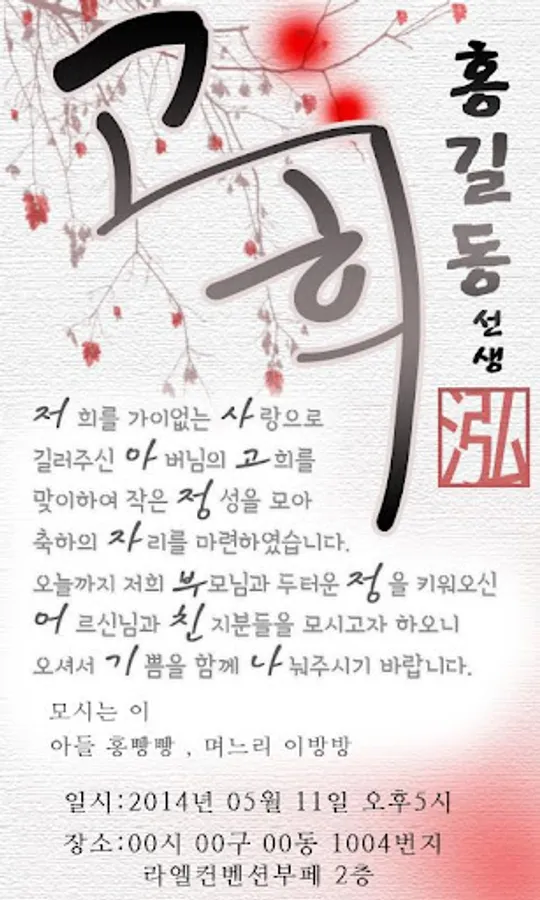 고희
홍길동
선생
泓
저희를 가이없는 사랑으로
길러주신 아버님의 고희를
맞이하여 작은 정성을 모아
축하의 자리를 마련하였습니다.
오늘까지 저희 부모님과 두터운 정을 키워오신
어르신님과 친지분들을 모시고자 하오니
오셔서 기쁨을 함께 나눠주시기 바랍니다.
모시는 이
아들 홍빵빵 , 며느리 이방방
일시:2014년 05월 11일 오후5시
장소:00시 00구 00동 1004번지
라엘컨벤션부페 2층